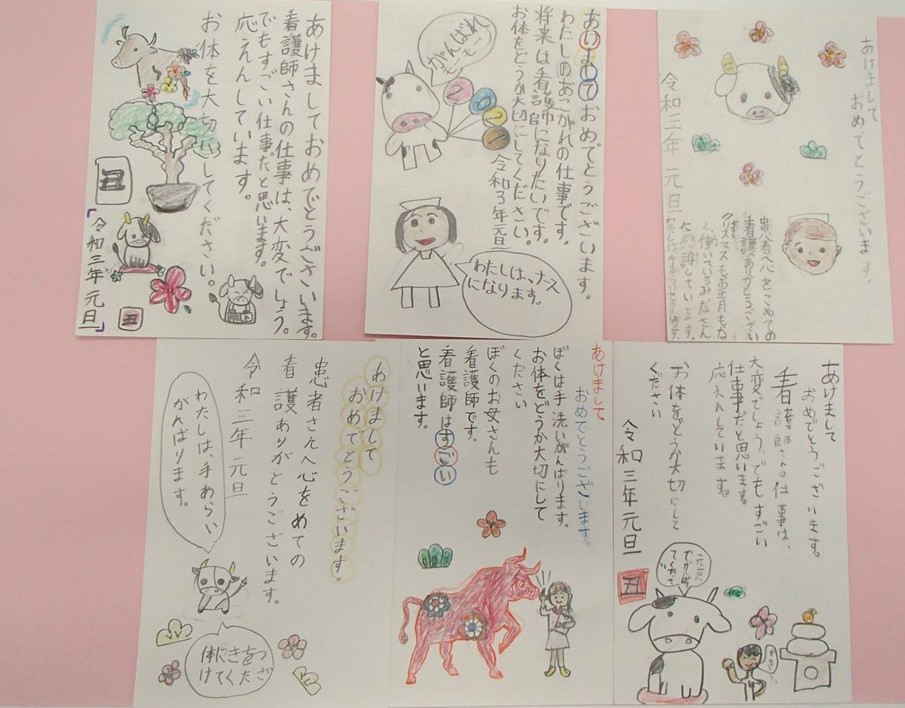 あけましておめでとうございます。
看護師さんの仕事は、大変でしょう。
でもすごい仕事だと思います。
応えんしています。
お体を大切にしてください。
丑
令和三年元旦
丑
あけましておめでとうございます。
わたしのあこがれの仕事です。
将来は看護師になりたいです。
お体をどうか大切にしてください。
令和3年元旦
がんばれ
モーモー
わたしは、ナース
になります。
あけまして
おめでとうございます。
患者へ心をこめての
看護ありがとうござい
ます。
クリスマスもお正月もな
く働いているみなさん
に感謝しています。
令和三年 元旦
あけまして
おめでとうございます。
患者さんへ心をめての
看護ありがとうございます。
令和三年 元旦
わたしは、手あらい
がんばります。
体にきをつ
けてくださ
あけまして
おめでとうございます。
ぼくは手洗いがんばります。
お体をどうか大切にして
ください
ぼくのお母さんも
看護師です。
看護師はすごい
と思います。
あけまして
おめでとうございます。
看護師さんの仕事は、
大変でしょう。でもすごい
仕事だと思います。
応えんしています。
お体をどうか大切にして
ください
令和三年元旦
丑